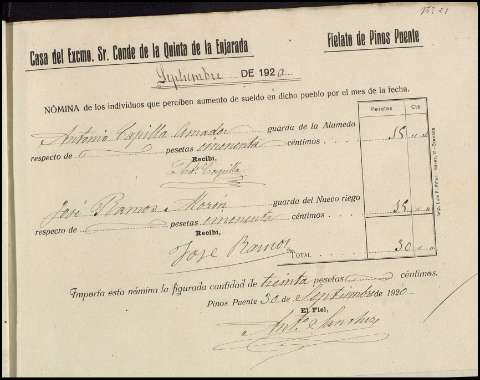 Nº 21
Casa del Excmo. Sr. Conde de la Quinta de la Enjarada
Fielato de Pinos Puente
Septiembre DE 1920
NÓMINA de los individuos que perciben aumento de sueldo en dicho pueblo por el mes de la fecha.
Pesetas Cts
Antonio Capilla Amador guarda de la Alameda
respecto de pesetas céntimos 15
Recibí,
Capilla
José Ramos Moron guarda del Nuevo riego
respecto de pesetas céntimos 15
Recibí,
José Ramos
TOTAL 30
Importa esta nómina la figurada cantidad de treinta pesetas céntimos.
Pinos Puente 30 de Septiembre de 1920
El Fiel,
Antº Sanchez